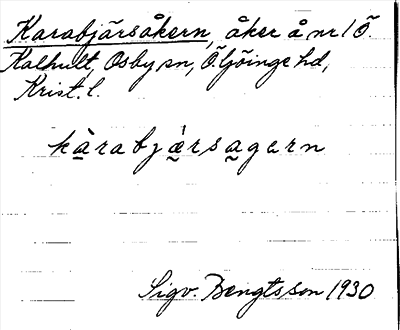 Karabjärsåkern, åker å nr 1 Ö.
Kalhult, Osby sn, Ö. Göinge hd,
Krist. l.
kàrabjä́rsagern
Sigv. Bengtsson 1930